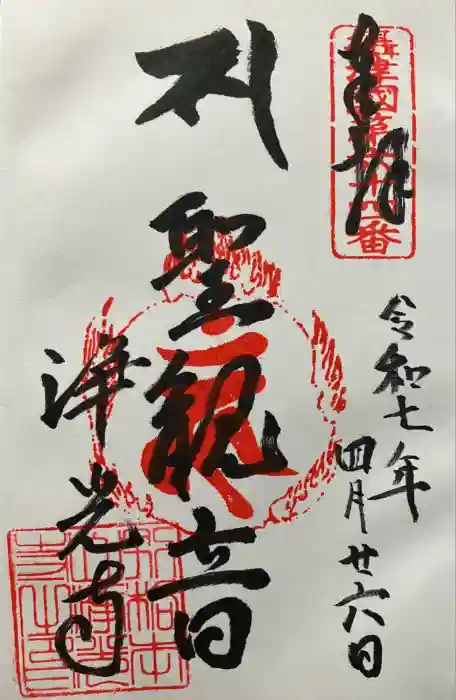 奉拝
摂津國第六十四番
令和七年
四月廿六日
聖観音
浄光寺